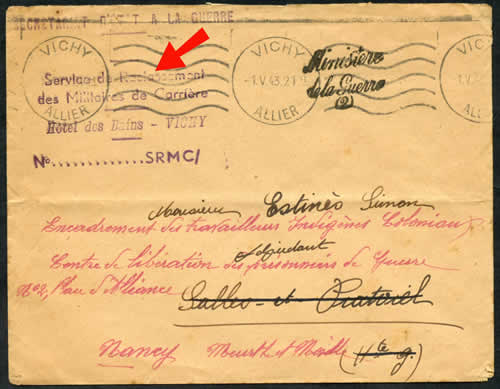 SECRETARIAT D'ETAT A LA GUERRE
VICHY ALLIER
Service de Reclassement
des Militaires de Carrière
Hôtel des Bains - VICHY
No.............SRMC/
VICHY -1.V.43.21 ALLIER
Ministère
de la Guerre
(2)
VICHY -1.V. ALLIER
Monsieur Estinès Simon
Encadrement des travailleurs Indigènes Coloniaux
Adjudant
Centre de libération des prisonniers de Guerre
No 2, Place d'Alliance
Nancy Meurthe et Moselle (Hte G.)